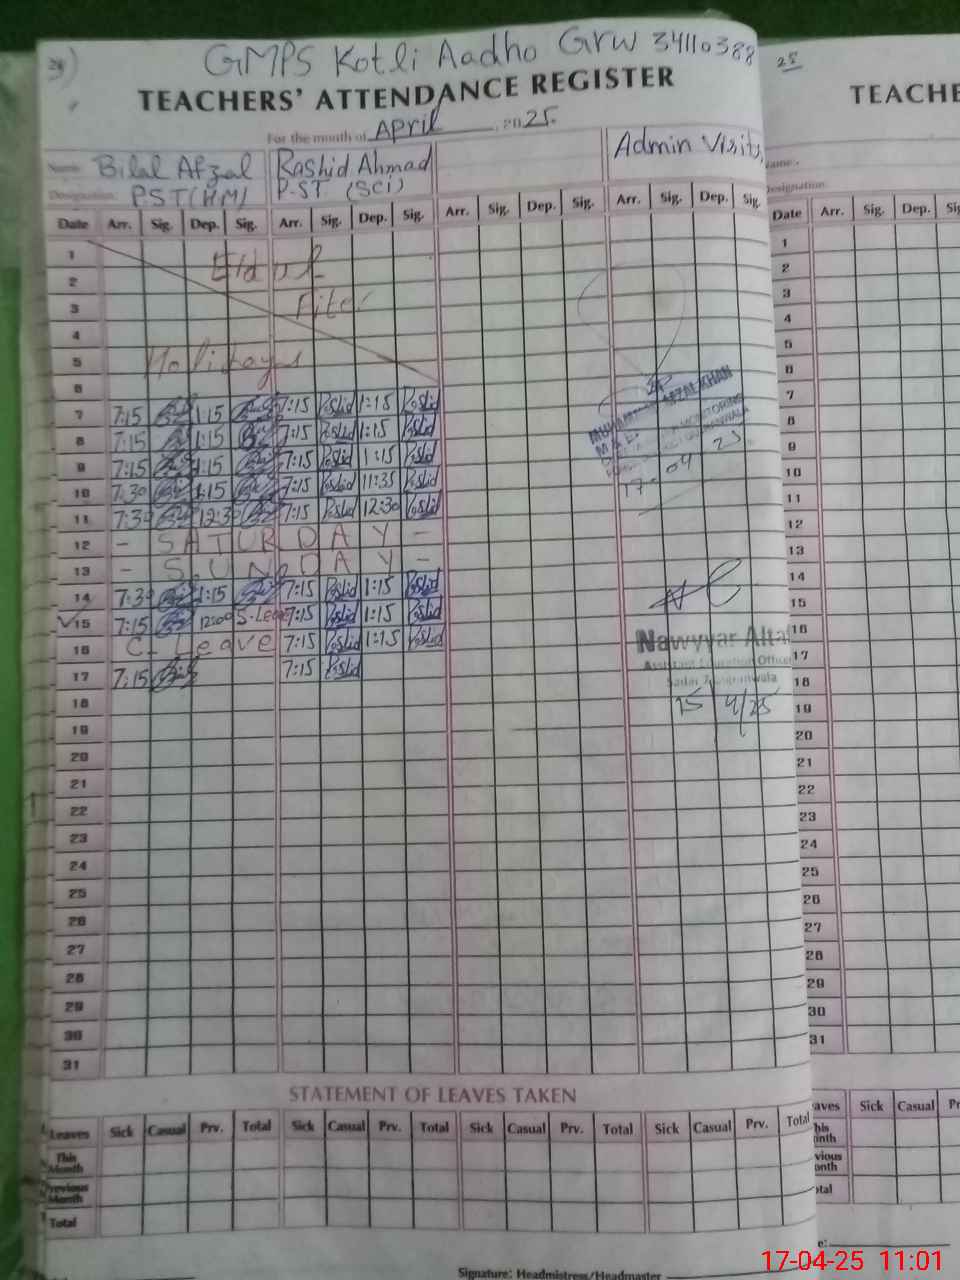 28)
GMPS Kotli Aadho Grw 34110388
TEACHERS' ATTENDANCE REGISTER
For the month of April, 2025.
Name Bilal Afzal Rashid Ahmad Admin Visits
Designation PST(HM) P-ST (Sci)
Date Arr. Sig. Dep. Sig. Arr. Sig. Dep. Sig. Arr. Sig. Dep. Sig. Arr. Sig. Dep. Sig.
1 Eid ul
2
3 Fiter
4
5 Holidays
6
7 7:15 1:15 7:15 Rashid 1:15 Rashid
8 7:15 1:15 7:15 Rashid 1:15 Rashid
9 7:15 1:15 7:15 Rashid 1:15 Rashid
10 7:30 1:15 7:15 Rashid 11:35 Rashid
11 7:30 12:30 7:15 Rashid 12:30 Rashid
12 - SATURDAY -
13 - SUNDAY -
14 7:30 1:15 7:15 Rashid 1:15 Rashid
15 7:15 12:00 S-Leave 7:15 Rashid 1:15 Rashid
16 C. Leave 7:15 Rashid 1:15 Rashid
17 7:15 7:15 Rashid
18
19
20
21
22
23
24
25
26
27
28
29
30
31
AFZAL KHAN
MONITORING
17-04 25
Nawyyar Altaf
Assistant Education Officer
Sadar Gujranwala
15/4/25
STATEMENT OF LEAVES TAKEN
Leaves Sick Casual Prv. Total Sick Casual Prv. Total Sick Casual Prv. Total Sick Casual Prv. Total
This Month
Previous Month
Total
Signature: Headmistress/Headmaster
25
TEACHE
Name
Designation
Date Arr. Sig. Dep. Sig
1
2
3
4
5
6
7
8
9
10
11
12
13
14
15
16
17
18
19
20
21
22
23
24
25
26
27
28
29
30
31
aves Sick Casual Pr
his
onth
vious
onth
otal
e:
17-04-25 11:01